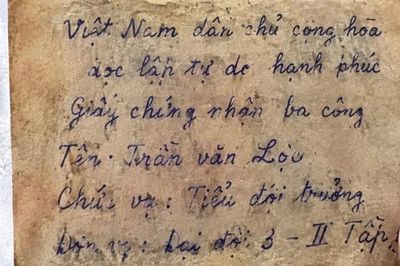 Việt Nam dân chủ cộng hòa
dọc lập tự do hạnh phúc
Giấy chứng nhận ba công
Tên: Trần văn Lộc
Chức vụ: Tiểu đội trưởng
Đơn vị: Đại đội 3 - II Tập